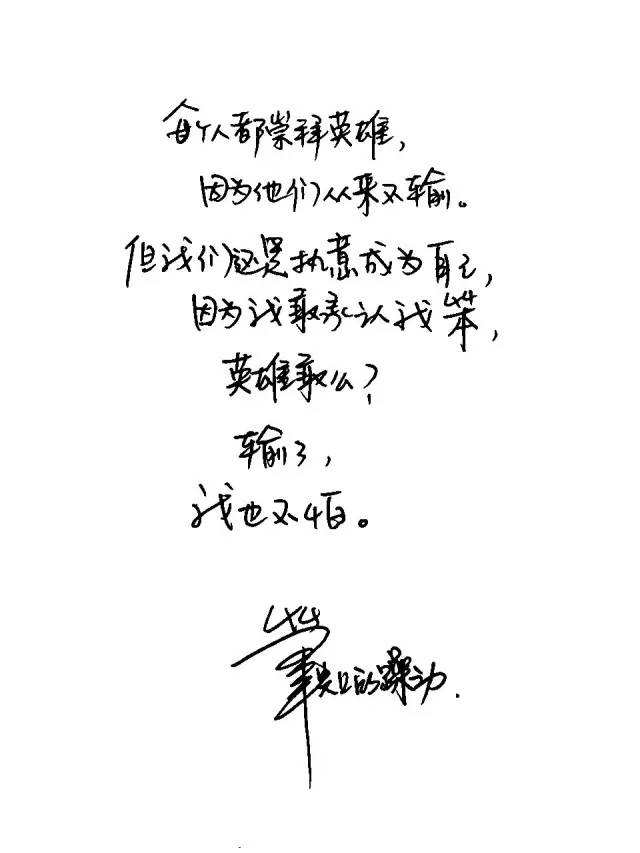 每个人都崇拜英雄，
因为他们从来不输。
但我们还是执意成为自己，
因为我敢承认我笨，
英雄敢么？
输了，
我也不怕。
笔知的躁动.